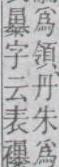 爲領丹朱爲
㬥字云表襮